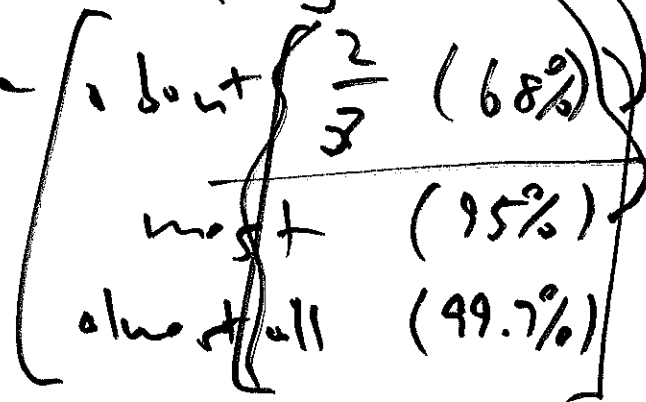 about 2/3 (68%)
most (95%)
almost all (99.7%)